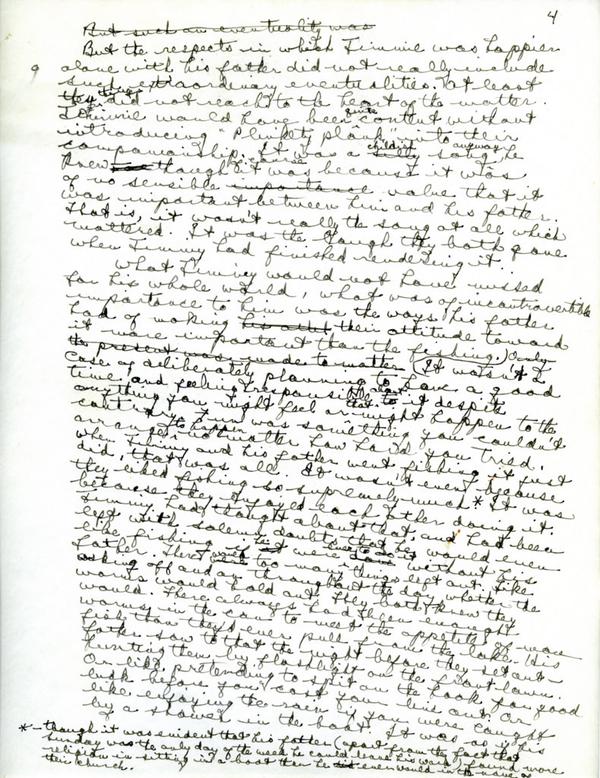 4
But such an eventuality was
But the respects in which Jimmie was happier
alone with his father did not really include
such extraordinary eventualities. At least
they did not reach to the heart of the matter.
Jimmie would have been quite content without
introducing "Plunkety plunk" into their
companionship. It was a childish silly song, anyway, he
knew though it was because it was
of no sensible importance value that it
was important between him and his father.
That is, it wasn't really the song at all which
mattered. It was the laugh they both gave
when Jimmy had finished rendering it.
What Jimmy would not have missed
for his whole world, what was of incontrovertible
importance to him was the ways his father
had of making their attitude toward
it more important than the fishing. Only
to present was made to matter (It wasn't a
case of deliberately planning to have a good
time, and feeling responsible to it despite
anything you might feel or might happen to the
contrary. Fun was something you couldn't
arrange to happen no matter how hard you tried.
When Jimmy and his father went fishing it just
did, that was all. It wasn't even because
they liked fishing so supremely much. * It was
because they enjoyed each other doing it.
Jimmy had thought about that, and had been
left with solemn doubts that he would even
like fishing if it were without his
father. There were too many things left out. Like
asking off and on throughout the day whether the
worms would hold out. They both knew they
would. There always had been enough
worms in the can to meet the appetites of more
fish than they'd ever pull from the lake. His
father saw to that the night before they set out—
hunting them by flashlight on the front lawn.
Or like pretending to spit on the hook for good
luck before you cast your line out. Or
like enjoying the rain if you were caught
by a shower in the boat. It was as if his
* – though it was evident that his father (apart from the fact that
Sunday was the only day of the week he could leave his work) found more
religion in sitting in a boat than he ever would in
their church.